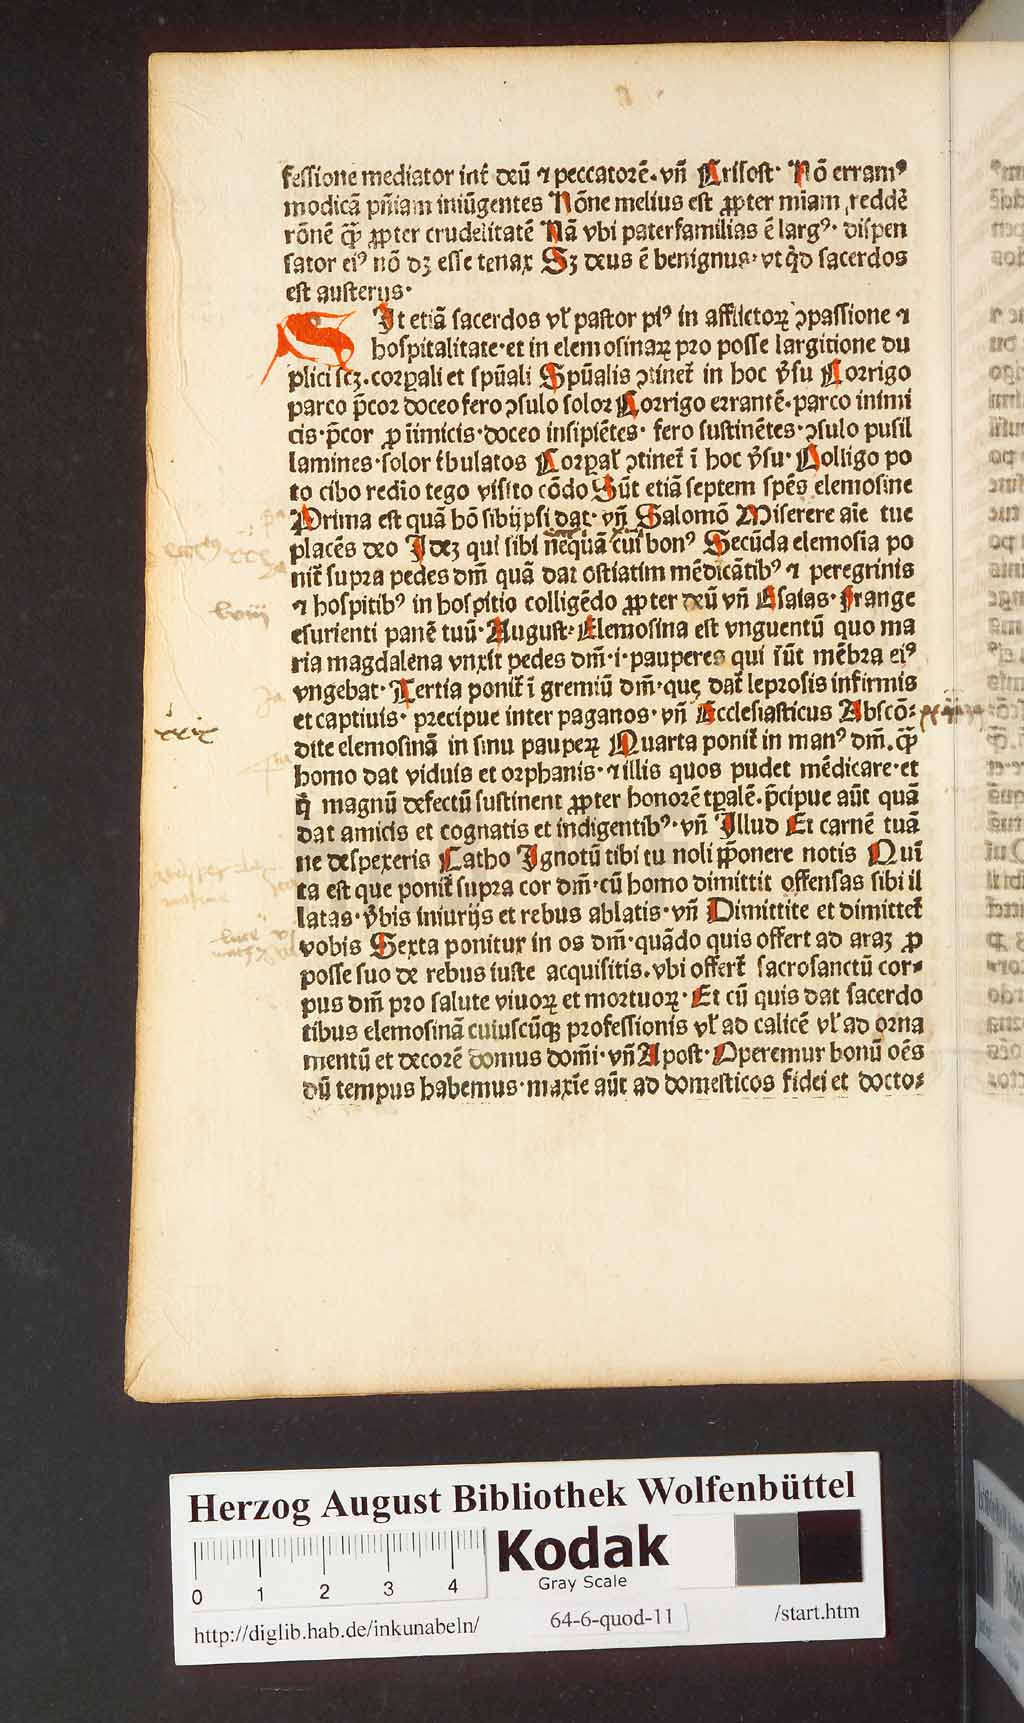 fessione mediator int̃ deũ ⁊ peccatorẽ. vñ Crisost. Nõ erramꝰ
modicã pñiam iniũgentes Nõne melius est ꝓpter miam reddẽ
rõnẽ q̃ꝫ ꝓpter crudelitatẽ Nã vbi paterfamilias ẽ largꝰ. dispen
sator eiꝰ nõ dꝫ esse tenax Sꝫ deus ẽ benignus. vt qd sacerdos
est austerus.
SIt etiã sacerdos vl̃ pastor piꝰ in afflictoꝝ ↄpassione ⁊
hospitalitate. et in elemosinaꝝ pro posse largitione du
plici scꝫ. corꝑali et spũali Spũalis ↄtinet̃ in hoc v̾su Corrigo
parco p̃cor doceo fero ↄsulo solor Corrigo errantẽ. parco inimi
cis. p̃cor ꝓ iĩmicis. doceo insipiẽtes. fero sustinẽtes. ↄsulo pusil
lamines. solor t̾bulatos Corꝑal̃ ↄtinet̃ ĩ hoc v̾su. Colligo po
to cibo redio tego visito cõdo Sũt etiã septem spẽs elemosine
Prima est quã hõ sibijpsi dat. vñ Salomõ Miserere aĩe tue
placẽs deo Ideꝫ qui sibi neq̃uã cui bonꝰ Secũda elemosia po
nit̃ supra pedes dm̃ quã dat ostiatim mẽdicãtibꝰ ⁊ peregrinis
⁊ hospitibꝰ in hospitio colligẽdo ꝓpter deũ vñ Esaias. Frange
esurienti panẽ tuũ. August. Elemosina est vnguentũ quo ma
ria magdalena vnxit pedes dm̃. i. pauperes qui sũt mẽbra eiꝰ
vngebat. Tertia ponit̃ ĩ gremiũ dm̃. que dat̃ leprosis infirmis
et captiuis. precipue inter paganos. vñ Ecclesiasticus Abscõ-
dite elemosinã in sinu pauperꝝ Quarta ponit̃ in manꝰ dm̃. q̃ꝫ
homo dat viduis et orphanis. ⁊ illis quos pudet mẽdicare. et
q̃ magnũ defectũ sustinent ꝓpter honorẽ tꝑalẽ. p̃cipue aũt quã
dat amicis et cognatis et indigentibꝰ. vñ Illud Et carnẽ tuã
ne despexeris Catho Ignotũ tibi tu noli p̃ponere notis Quĩ
ta est que ponit̃ supra cor dm̃. cũ homo dimittit offensas sibi il
latas. v̾bis iniurijs et rebus ablatis. vñ Dimittite et dimittet̃
vobis Sexta ponitur in os dm̃. quãdo quis offert ad araꝫ ꝓ
posse suo de rebus iuste acquisitis. vbi offert̃ sacrosanctũ cor-
pus dm̃ pro salute viuoꝝ et mortuoꝝ. Et cũ quis dat sacerdo
tibus elemosinã cuiuscũqꝫ professionis vl̃ ad calicẽ vl̃ ad orna
mentũ et decorẽ domus dom̃i. vñ Apost. Operemur bonũ oẽs
dũ tempus habemus. maxĩe aũt ad domesticos fidei et docto-
lviij
xxix
Herzog August Bibliothek Wolfenbüttel
0 1 2 3 4
Kodak
Gray Scale
http://diglib.hab.de/inkunabeln/
64-6-quod-11
/start.htm